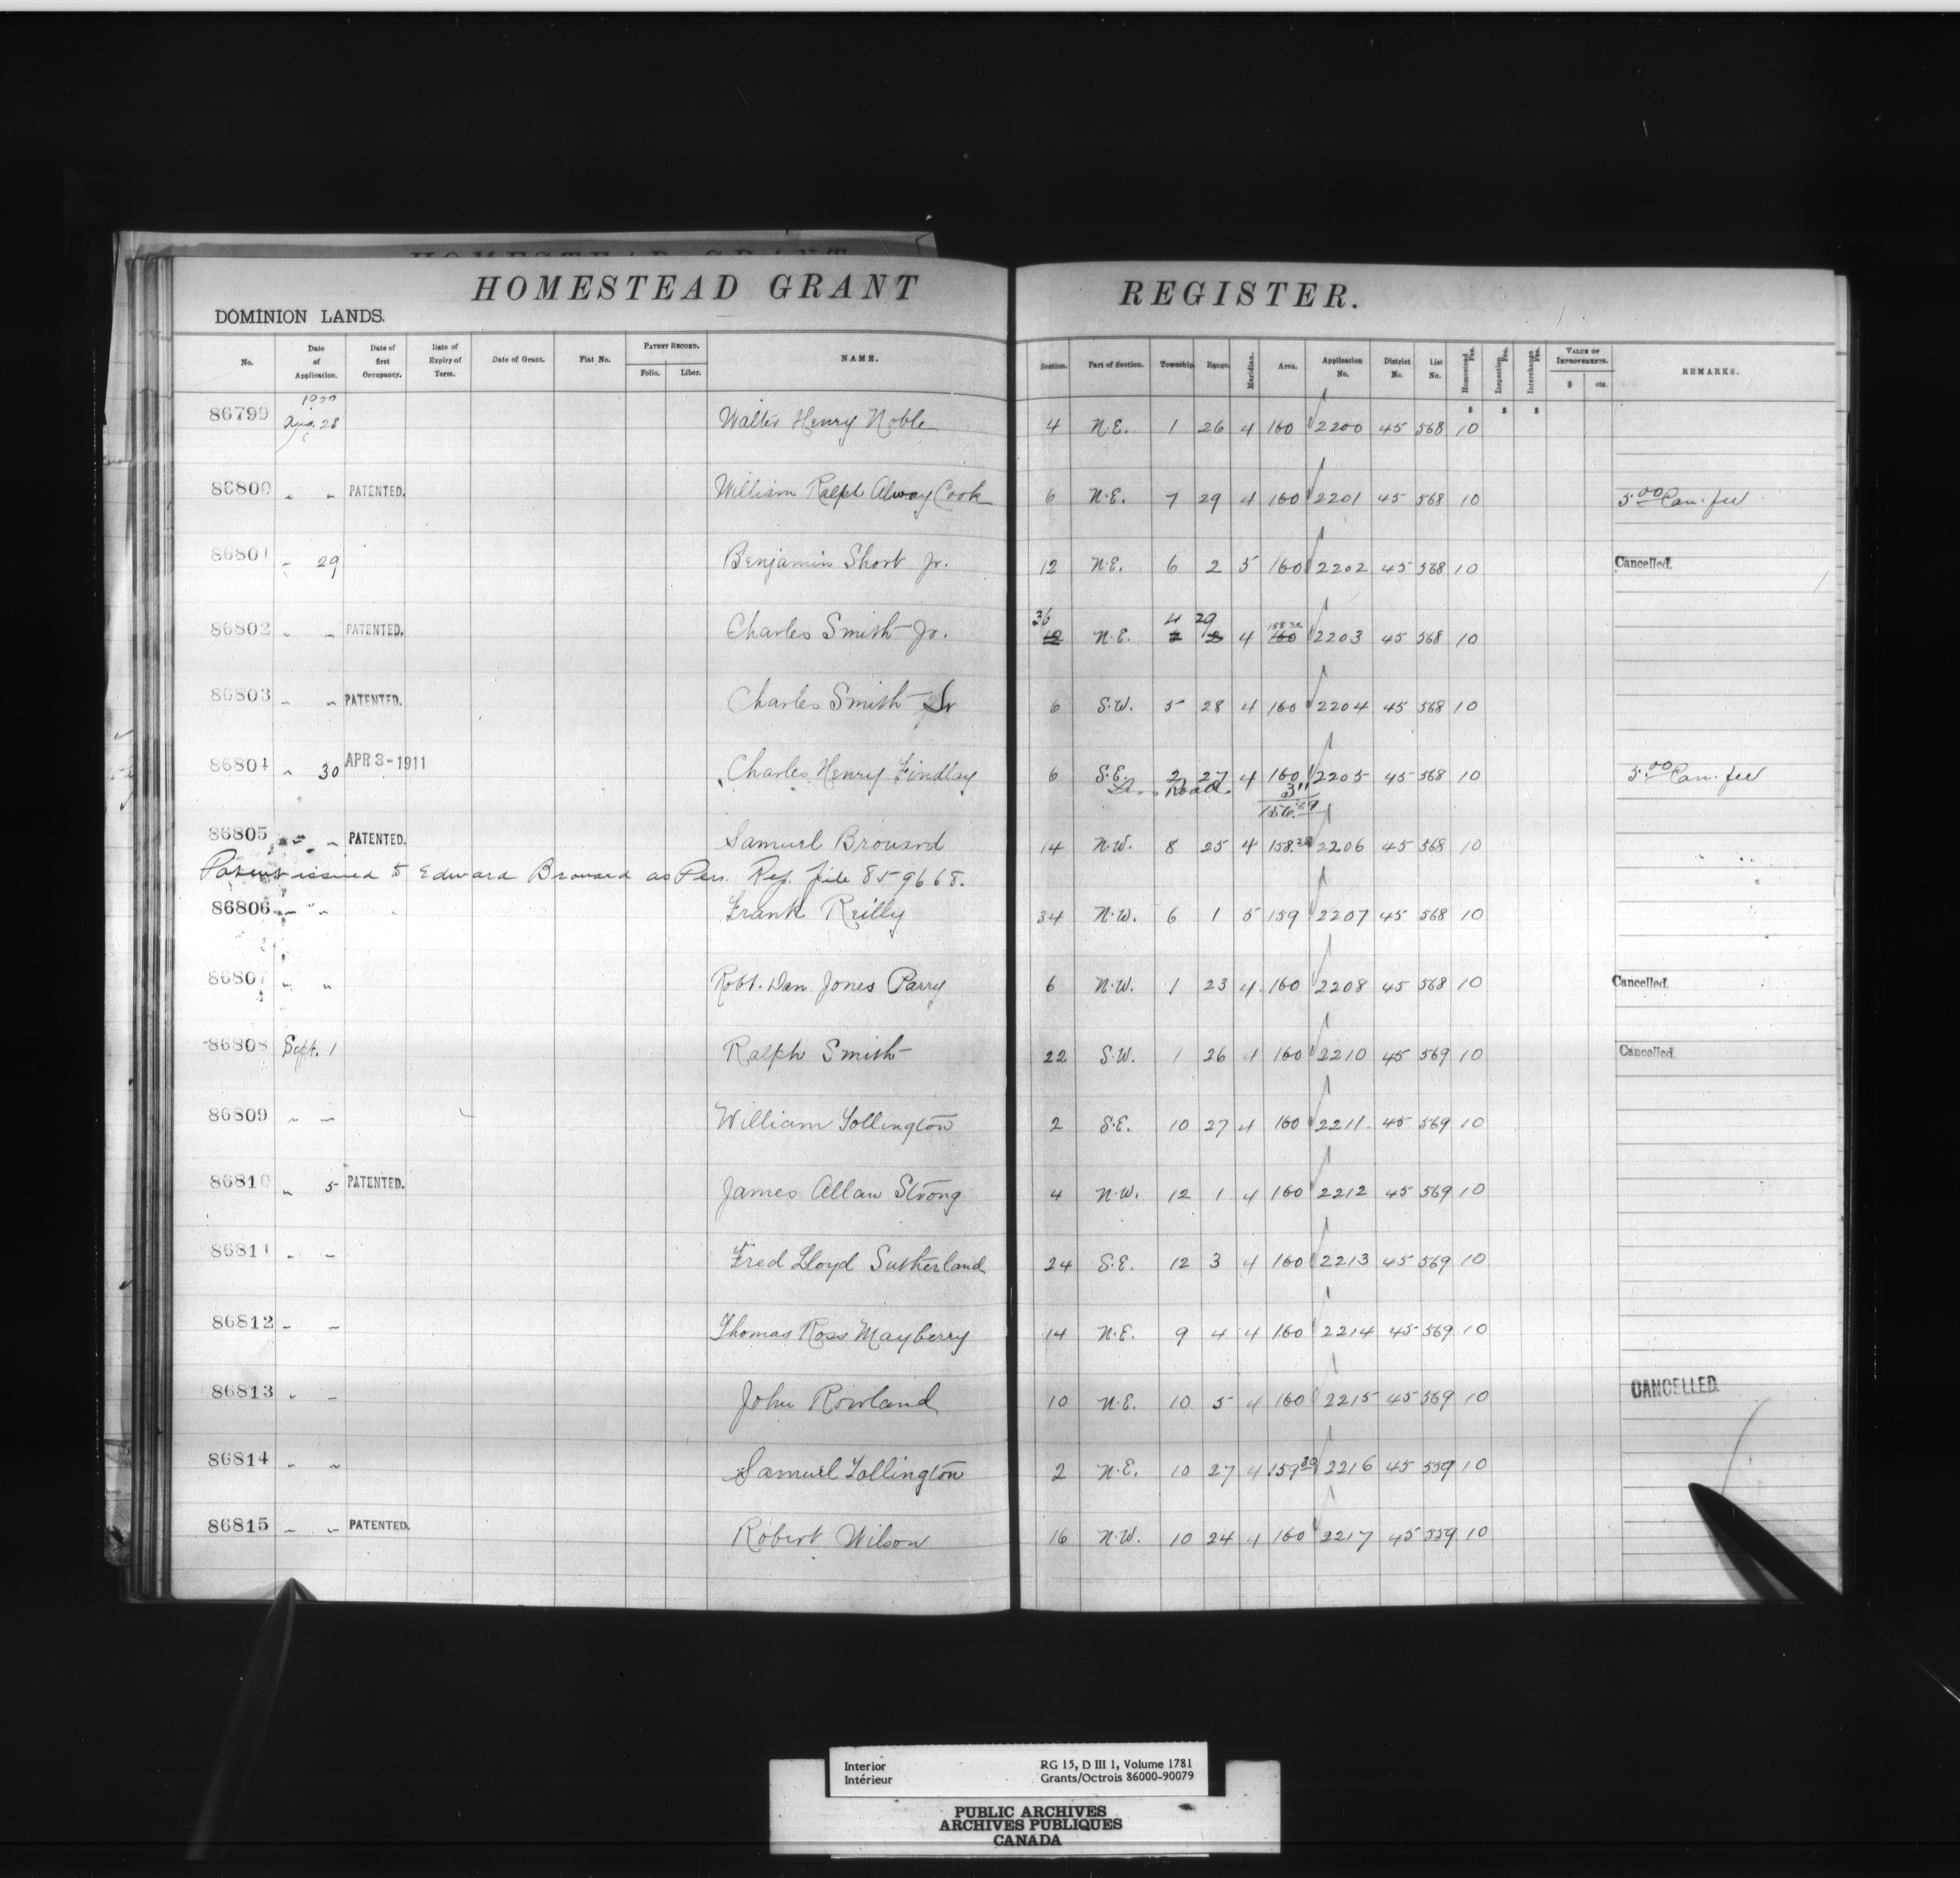 HOMESTEAD GRANT REGISTER.
DOMINION LANDS.
No. Date of Application. Date of first Occupancy. Date of Expiry of Term. Date of Grant. Fiat No. PATENT RECORD. Folio. Liber. NAME. Section. Part of Section. Township. Range. Meridian. Area. Application No. District No. List No. Homestead Fee. Inspection Fee. Interchange Fee. VALUE OF IMPROVEMENTS. $ cts. REMARKS.
$ $ $
86799 Aug. 28 Walter Henry Noble 4 N.E. 1 26 4 160 2200 45 568 10
86800 " " PATENTED. William Ralph Alway Cook 6 N.E. 7 29 4 160 2201 45 568 10 5.00 Can. fee
86801 " 29 Benjamin Short Jr. 12 N.E. 6 2 5 160 2202 45 568 10 Cancelled.
36 4 29
86802 " " PATENTED. Charles Smith Jr. N.E. 4 160 2203 45 568 10
86803 " " PATENTED. Charles Smith Sr 6 S.W. 5 28 4 160 2204 45 568 10
86804 " 30 APR 3-1911 Charles Henry Findlay 6 S.E. 2 27 4 160 2205 45 568 10 5.00 Can. fee
Road 3 11
156.89
86805 " " PATENTED. Samuel Brouard 14 N.W. 8 25 4 158. 2206 45 568 10
Patent issued to Edward Brouard as Pers. Rep. file 859668.
86806 " " Frank Reilly 34 N.W. 6 1 5 159 2207 45 568 10
86807 " " Robt. Dan Jones Parry 6 N.W. 1 23 4 160 2208 45 568 10 Cancelled.
86808 Sept. 1 Ralph Smith 22 S.W. 1 26 4 160 2210 45 569 10 Cancelled.
86809 " " William Tollington 2 S.E. 10 27 4 160 2211 45 569 10
86810 " 5 PATENTED. James Allan Strong 4 N.W. 12 1 4 160 2212 45 569 10
86811 " " Fred Lloyd Sutherland 24 S.E. 12 3 4 160 2213 45 569 10
86812 " " Thomas Ross Mayberry 14 N.E. 9 4 4 160 2214 45 569 10
86813 " " John Rowland 10 N.E. 10 5 4 160 2215 45 569 10 CANCELLED.
86814 " " Samuel Tollington 2 N.E. 10 27 4 159.30 2216 45 559 10
86815 " " PATENTED. Robert Wilson 16 N.W. 10 24 4 160 2217 45 559 10
Interior RG 15, D III 1, Volume 1781
Intérieur Grants/Octrois 86000-90079
PUBLIC ARCHIVES
ARCHIVES PUBLIQUES
CANADA